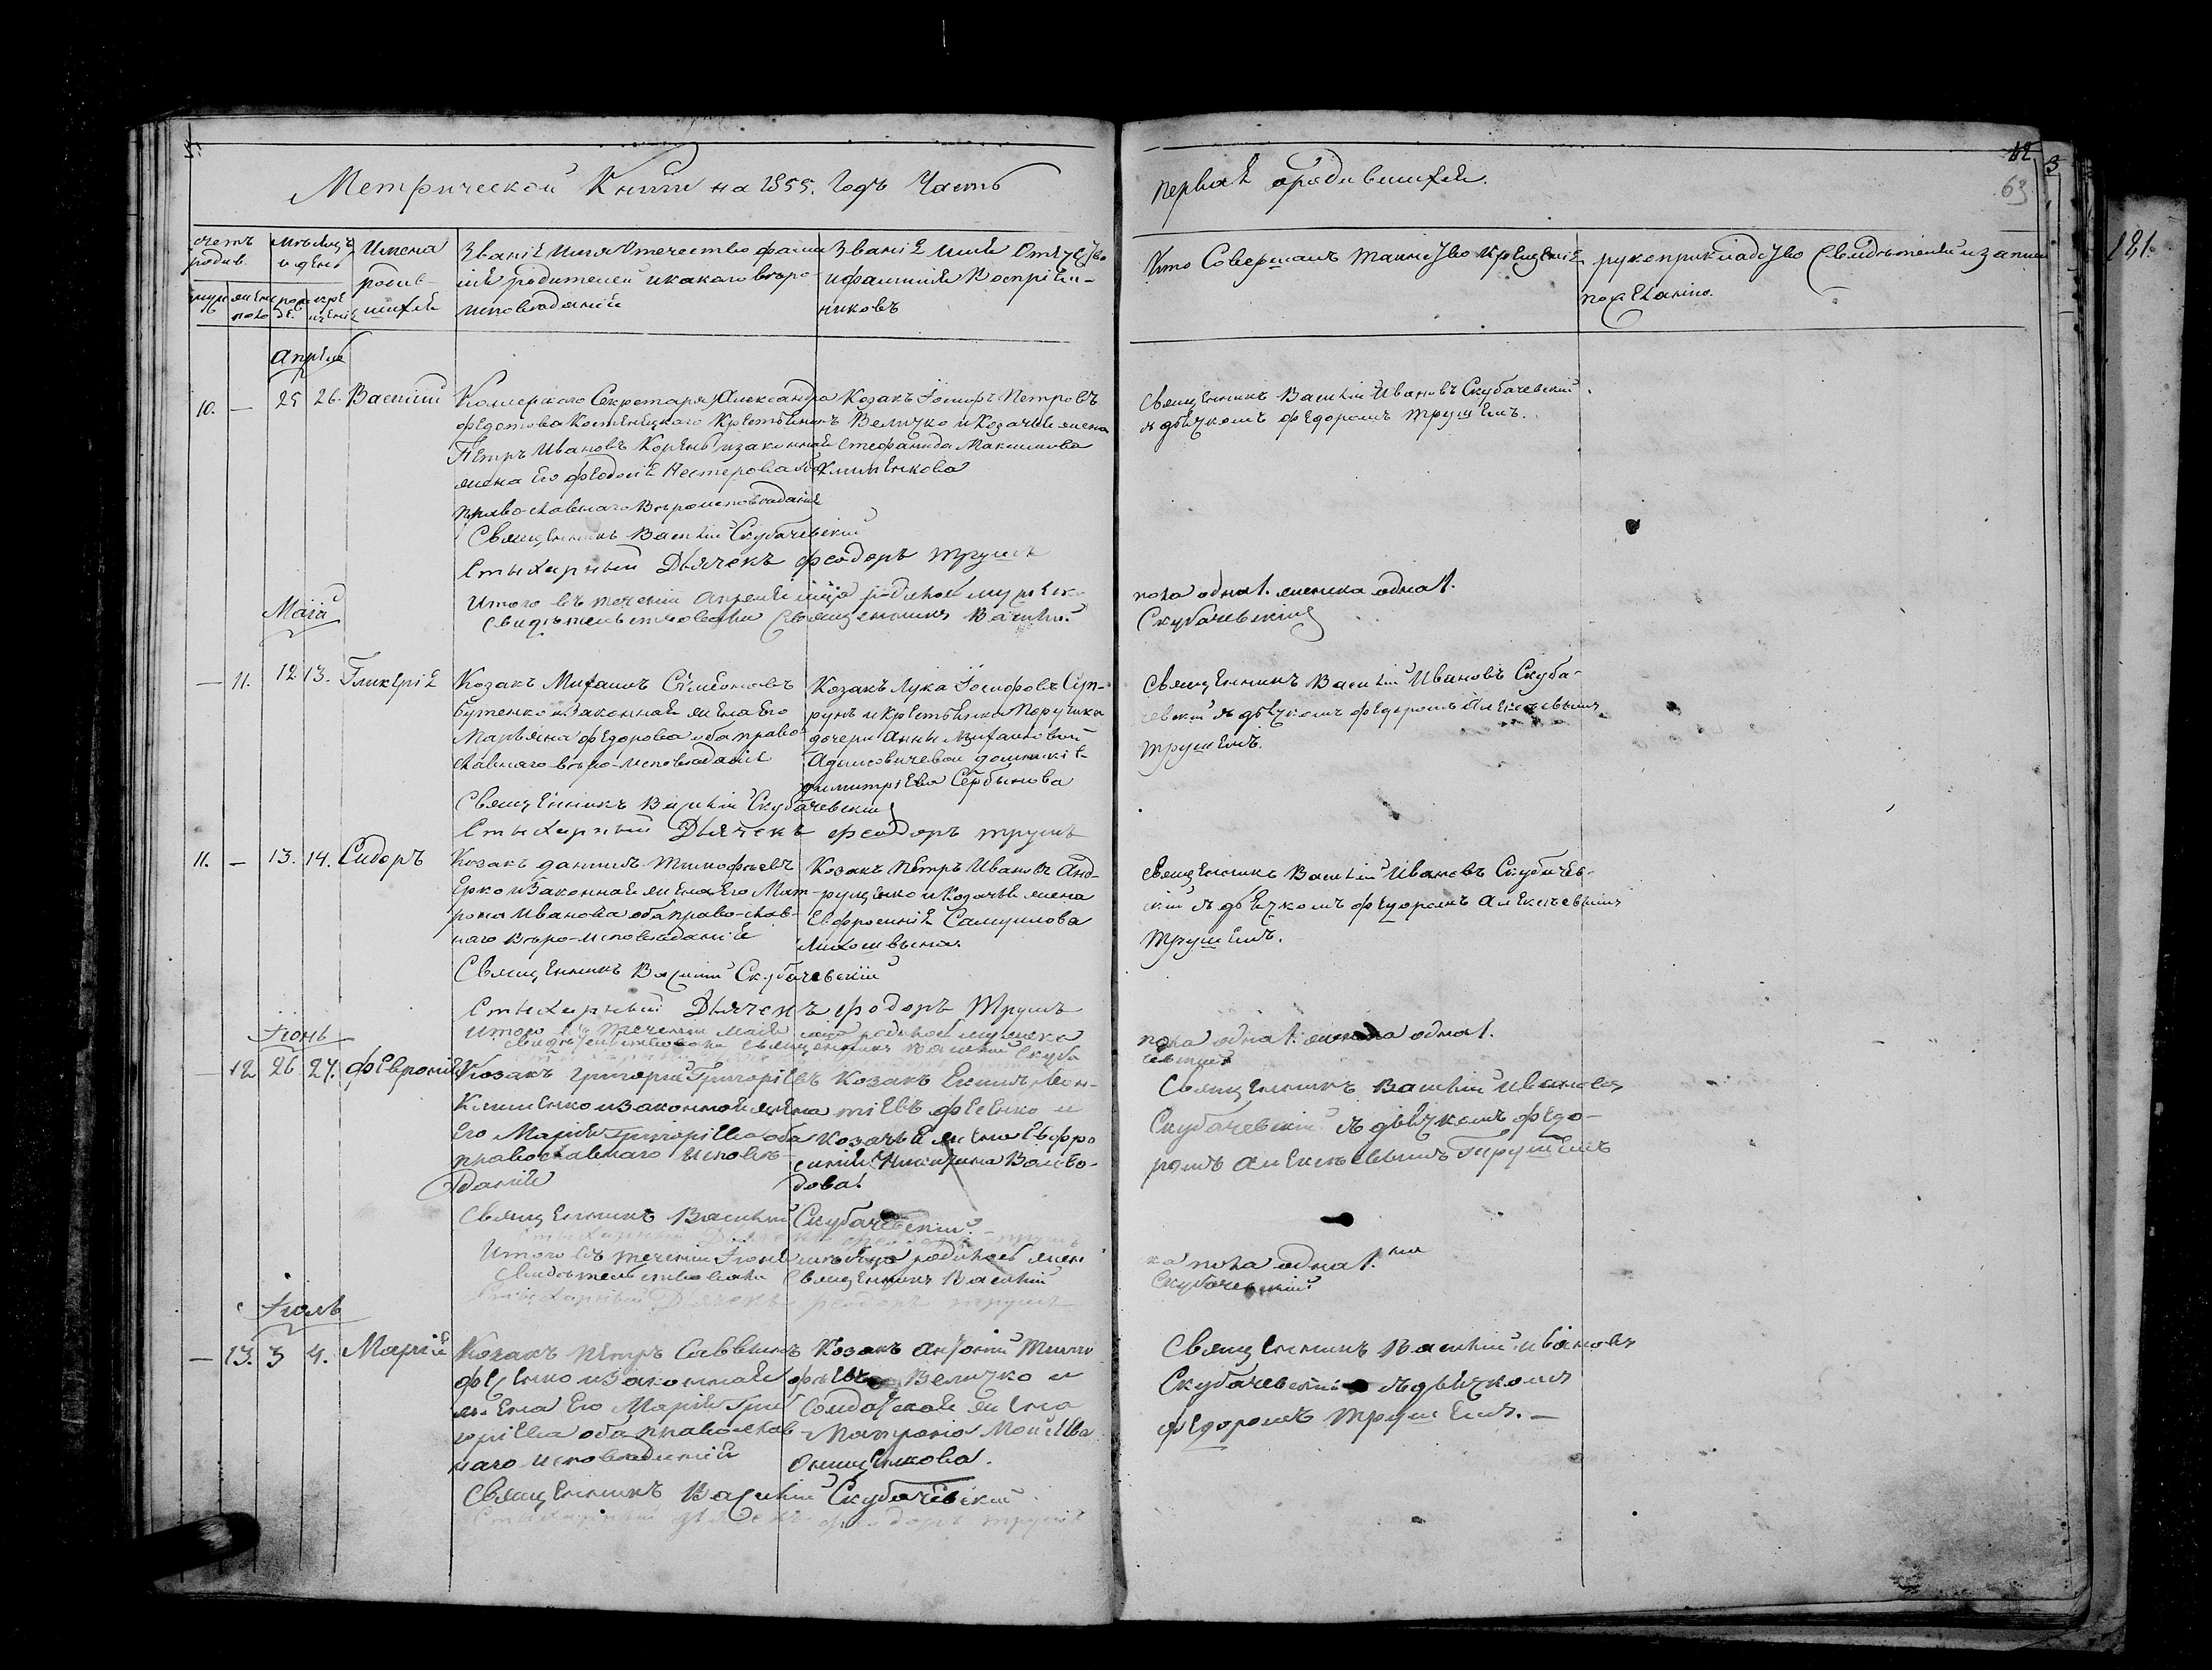 Метрической Книги на 1855. Годъ Часть
первая о родившихся.
62
3
63
181.
счетъ родив.
мѣсяцъ и день
Имена родившихся
Званіе Имя Отчество фамилія родителей и какого вѣроисповѣданія
Званіе Имя Отчество и фамилія Воспріемниковъ
Кто Совершалъ таинство Крещенія
рукоприкладство Свидѣтелей и записи по желанію.
Апрель
10. — 25 26. Василій
Колежского Секретаря Александра
Федотова Крестьянинъ
Петръ Ивановъ Корень и законная
жена Его Нестерова оба
православнаго Вѣроисповѣданія
Козакъ Іосифъ Петровъ
Величко и Козачья жена
Стефанида Максимова
Клименкова
Священникъ Василій Ивановъ Скубачевскій
съ дьячкомъ Федоромъ Трушемъ.
Священникъ Василій Скубачевскій
Стихарный Дьячекъ Феодоръ Трушъ
Итого въ теченіи Апреля мца родилось мужеска
пола одна 1. женска одна 1.
Свидѣтельствовали Священникъ Василій
Скубачевскій
Маія
— 11. 12 13. Гликерія
Козакъ Михаилъ Симеоновъ
Бутенко и Законная жена Его
Марьяна Федорова оба православнаго
вѣро-исповѣданія
Козакъ Лука Іосифовъ
и Крестьянка Поручика
дочери Анны Михайловой
Адамовичевой
Димитріева Сербинова
Священникъ Василій Ивановъ Скубачевскій
съ дьячкомъ Федоромъ Алексѣевымъ
Трушемъ.
Священникъ Василій Скубачевскій
Стихарный Дьячекъ Феодоръ Трушъ
11. — 13. 14. Сидоръ
Козакъ Даніилъ Тимофѣевъ
и Законная жена Его Матрона
Иванова оба православнаго
Вѣро-исповѣданія
Козакъ Петръ Ивановъ Андрущенко
и Козачья жена
Евфросинія Самуилова
Священникъ Василій Ивановъ Скубачевскій
съ дьячкомъ Федоромъ Алексѣевымъ
Трушемъ.
Священникъ Василій Скубачевскій
Стихарный Дьячекъ Феодоръ Трушъ
Итого въ теченіи Маія мца родилось мужеска
пола одна 1. женска одна 1.
Свидѣтельствовали Священникъ Василій Скубачевскій
Іюнь
— 12 26 27. Февронія
Козакъ Григорій Григоріевъ
Клименко и законная жена
Его Марія Григоріева оба
православнаго исповѣданія
Козакъ Леонтіевъ Фесенко и
Козачья жена Евфросинія
Никитина
Священникъ Василій Ивановъ
Скубачевскій съ дьячкомъ Федоромъ
Алексѣевымъ Трушемъ
Священникъ Василій Скубачевскій
Стихарный Дьячекъ Феодоръ Трушъ
Итого въ теченіи Іюня мѣсяца родилось женска
пола одна 1.
Свидѣтельствовали Священникъ Василій
Скубачевскій
Стихарный Дьячекъ Феодоръ Трушъ
Іюль
— 13. 3 4. Марія
Козакъ Петръ Саввинъ
и Законная
жена Его Марія Григоріева
оба православнаго
исповѣданія
Козакъ Антоній Тимофѣевъ
Величко и
Солдатская жена
Матрона
Онищенкова.
Священникъ Василій Ивановъ
Скубачевскій съ дьячкомъ
Федоромъ Трушемъ. —
Священникъ Василій Скубачевскій
Стихарный Дьячекъ Феодоръ Трушъ